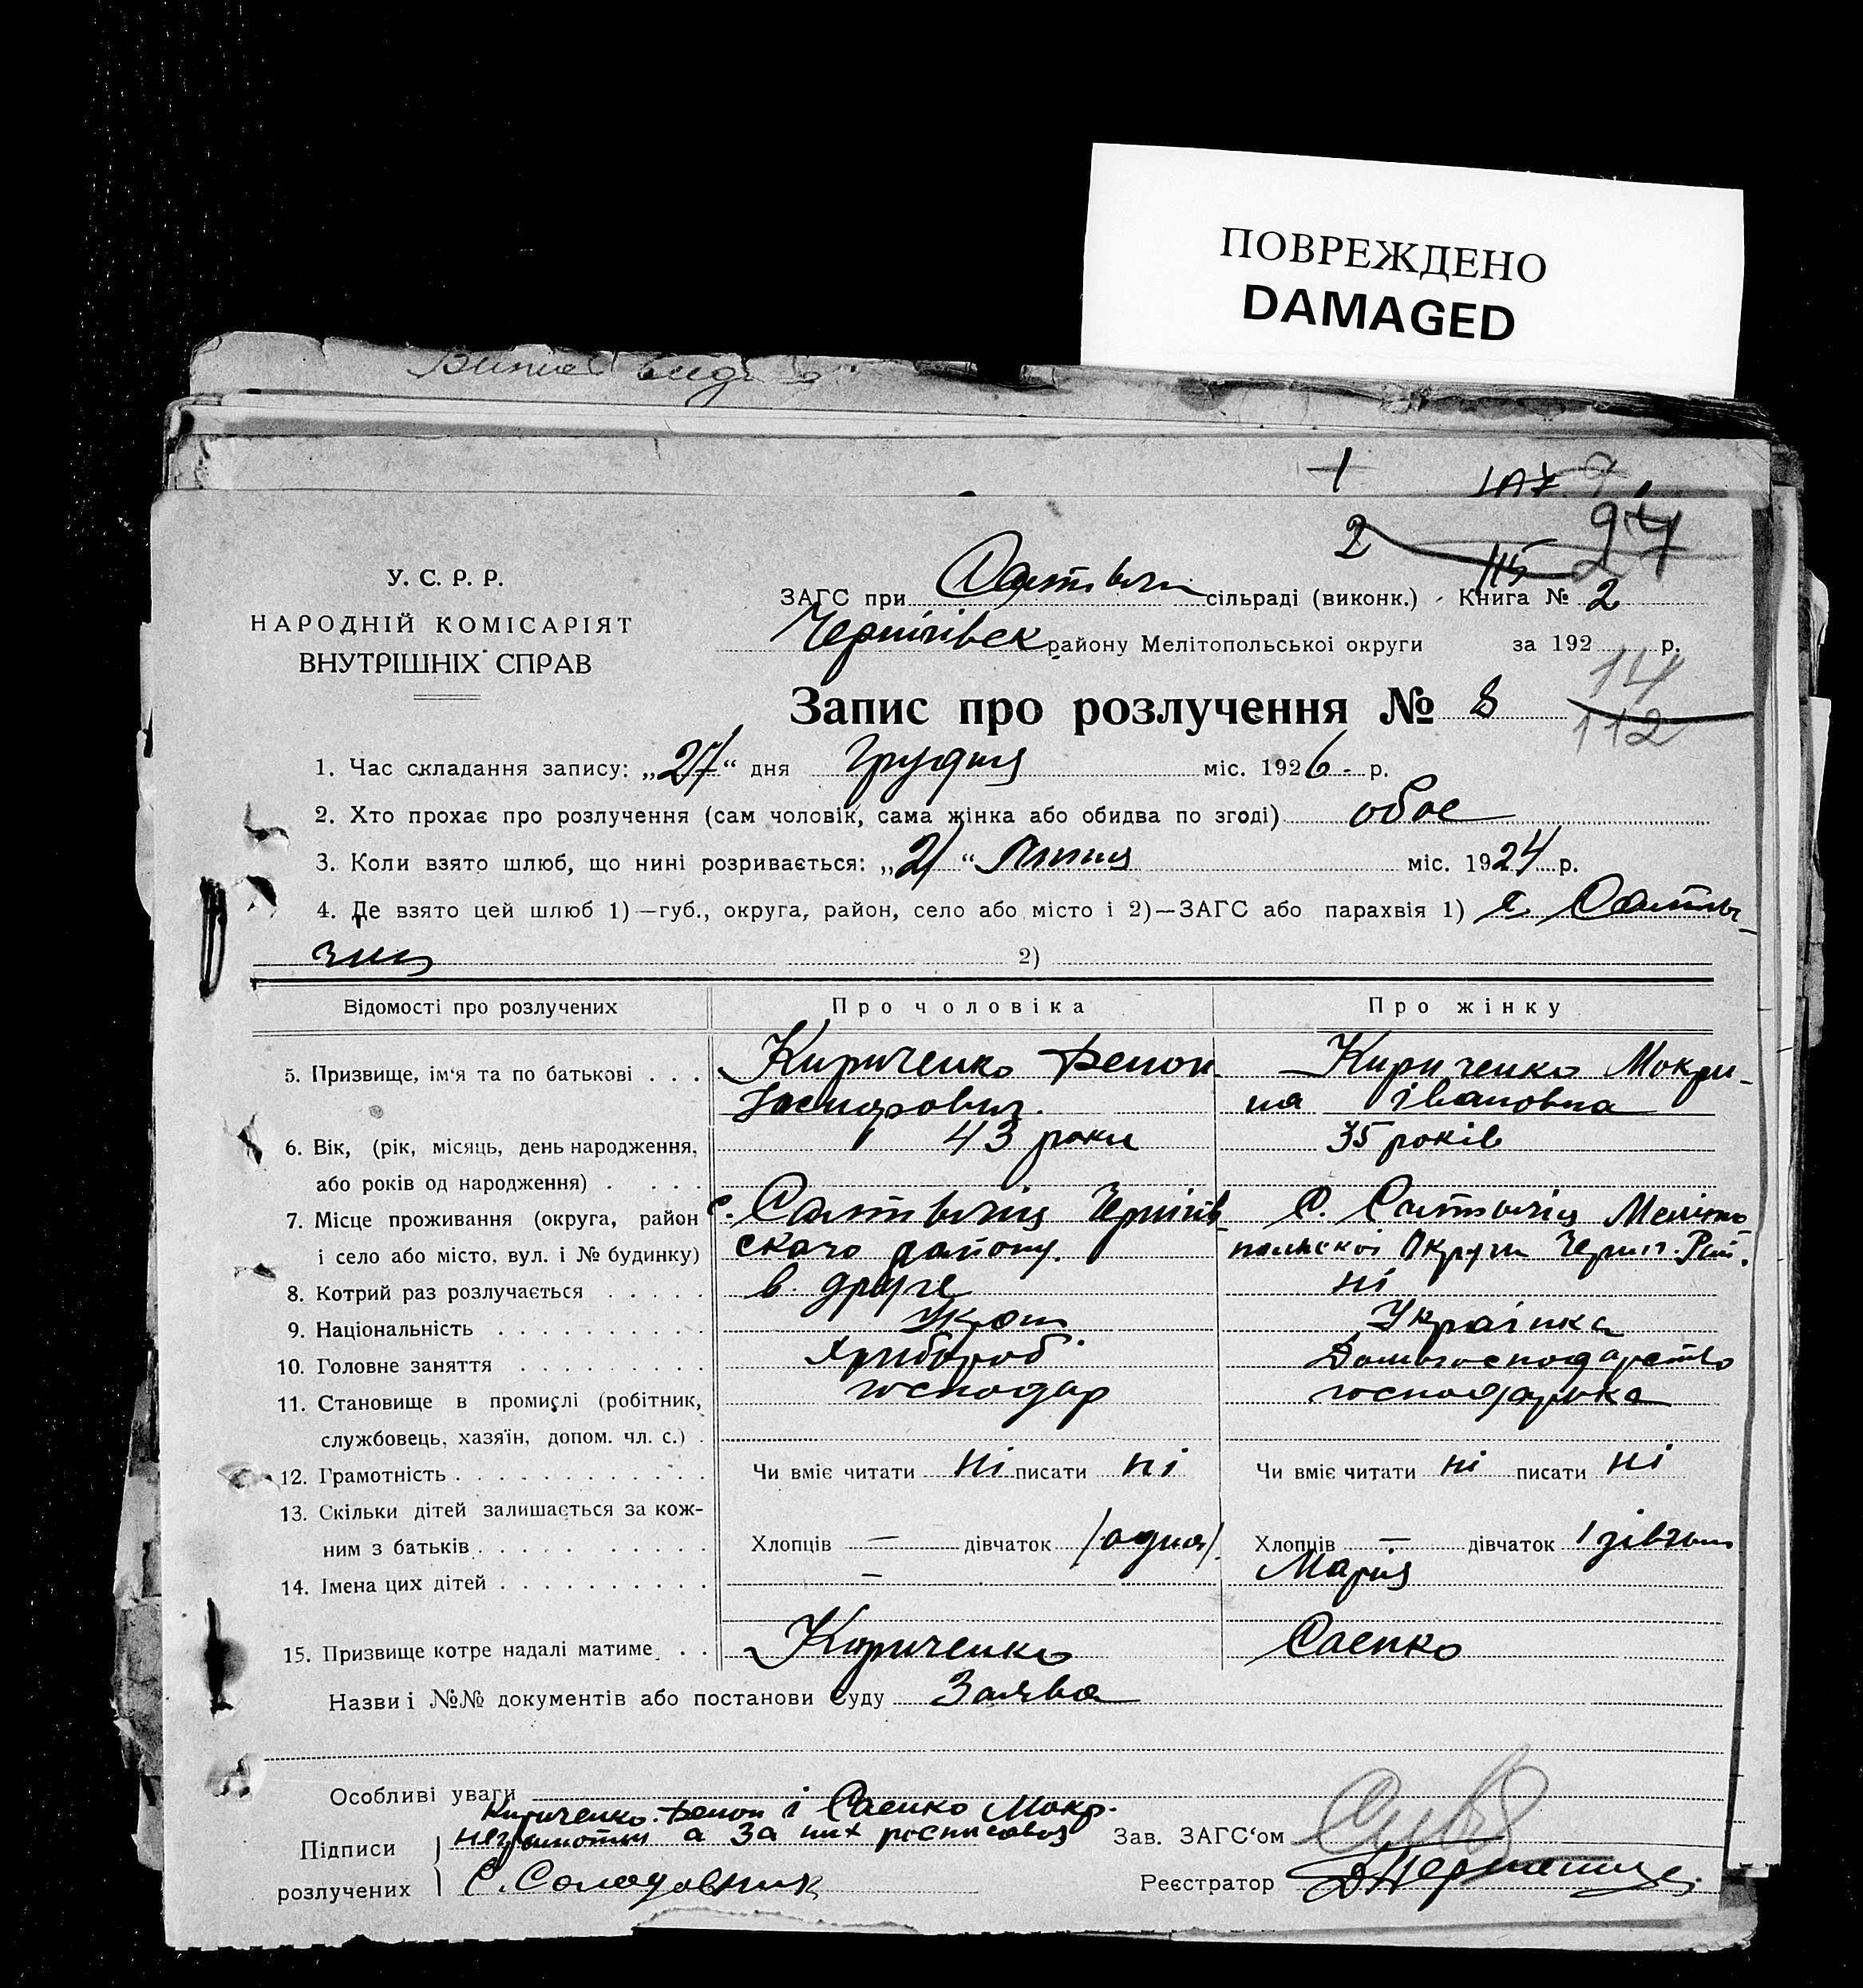 ПОВРЕЖДЕНО
DAMAGED
1
2
115
2
У. С. Р. Р.
НАРОДНІЙ КОМІСАРІЯТ
ВНУТРІШНІХ СПРАВ
ЗАГС при сільраді (виконк.) Книга № 2
Чернігівск району Мелітопольської округи за 192 р.
14
112
Запис про розлучення № 8
1. Час складання запису: „27“ дня Грудня міс. 1926 р.
2. Хто прохає про розлучення (сам чоловік, сама жінка або обидва по згоді) обоє
3. Коли взято шлюб, що нині розривається: „21“ Липня міс. 1924 р.
4. Де взято цей шлюб 1)—губ., округа, район, село або місто і 2)—ЗАГС або парахвія 1) с. Салты-
чия 2)
Відомості про розлучених Про чоловіка Про жінку
5. Призвище, ім'я та по батькові . . . Кириченко Кириченко Мокри-
на Івановна
6. Вік, (рік, місяць, день народження, 43 роки 35 років
або років од народження) . . . .
7. Місце проживання (округа, район с. Салтычия Чернігів- С. Салтычия Меліто-
і село або місто, вул. і № будинку) скаго району. польскої Округи Черниг. Рай.
8. Котрий раз розлучається . . . . . в. друге ні
9. Національність . . . . . . . . . . Украін Украінка
10. Головне заняття . . . . . . . . . Хрибороб Домогосподарство
11. Становище в промислі (робітник, господар господарька
службовець, хазяїн, допом. чл. с.) .
12. Грамотність . . . . . . . . . . . . Чи вміє читати ні писати ні Чи вміє читати ні писати ні
13. Скільки дітей залишається за кож-
ним з батьків . . . . . . . . . . Хлопців — дівчаток 1 одна Хлопців — дівчаток 1 дівчат
14. Імена цих дітей . . . . . . . . . . — Марія
15. Призвище котре надалі матиме . . Кириченко Саенко
Назви і №№ документів або постанови суду Заява
Особливі уваги
Кириченко і Саенко Мокр.
Підписи неграмотни а За них росписавсь Зав. ЗАГС'ом
розлучених С. Солодовник Реєстратор